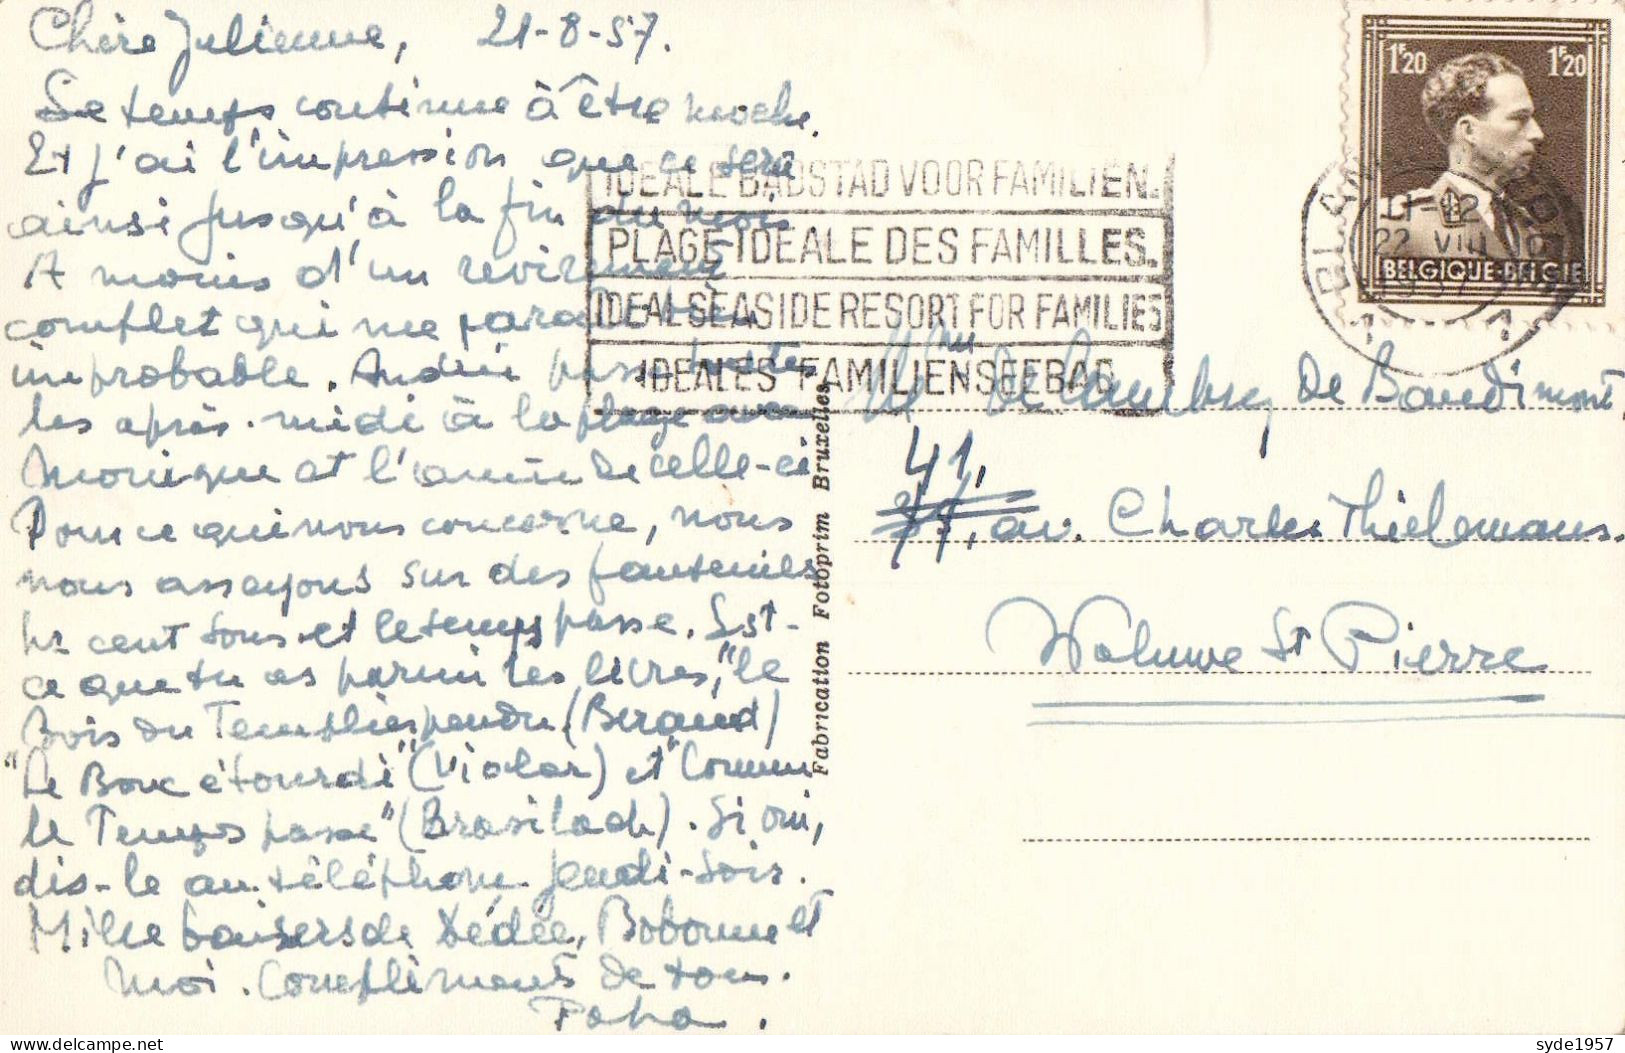 Chère Julienne, 21-8-57.
Le temps continue à être moche.
Et j'ai l'impression que ce sera
ainsi jusqu'à la fin du mois
A moins d'un revirement
complet qui me parait bien
improbable. Andrée passe toutes
les après-midi à la plage avec
Monique et l'amie de celle-ci
Pour ce qui nous concerne, nous
nous assayons sur des fauteuils
à cent sous et le temps passe. Est-
ce que tu as parmi tes livres, "le
Bois du Templier pendu (Beraud)
"Le Bouc étourdi" (Vialar) et "Comme
le Temps passe" (Brasilach). Si oui,
dis-le au téléphone jeudi-soir.
Mille baisers de Dédée, Bobonne et
moi. Compliments de tous.
Papa.
IDEALE BADSTAD VOOR FAMILIEN.
PLAGE IDEALE DES FAMILLES.
IDEAL SEASIDE RESORT FOR FAMILIES
IDEALES FAMILIENSEEBAD
1F20 1F20
BELGIQUE-BELGIE
11-12
22 VIII
1957
1 1
Fabrication Fotoprim Bruxelles
De Baudimont
41,
77, av. Charles Thielemans.
Woluwe St Pierre
syde1957